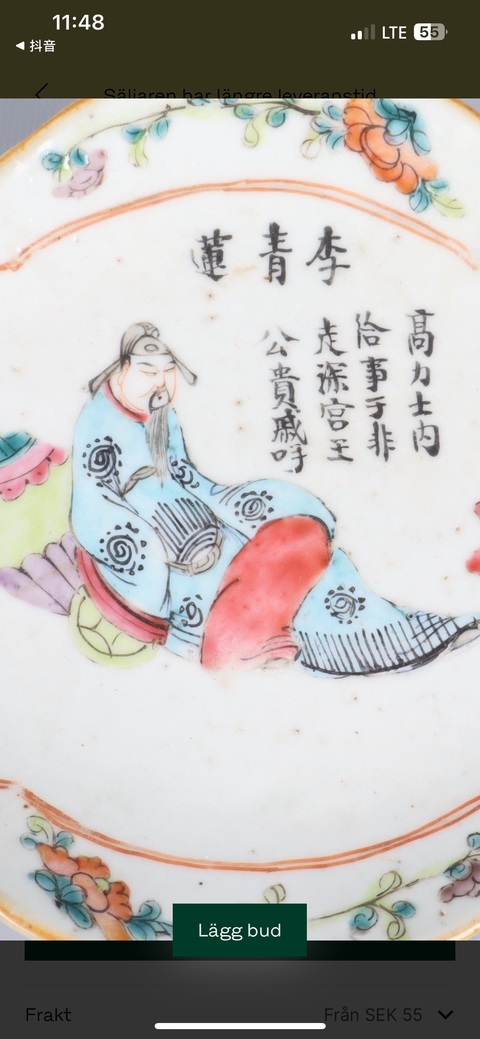 11:48
LTE 55
◀ 抖音
Säljaren har längre leveranstid
李青蓮
高力士内
给事于非
走深宫王
公貴戚呼
Lägg bud
Frakt
Från SEK 55